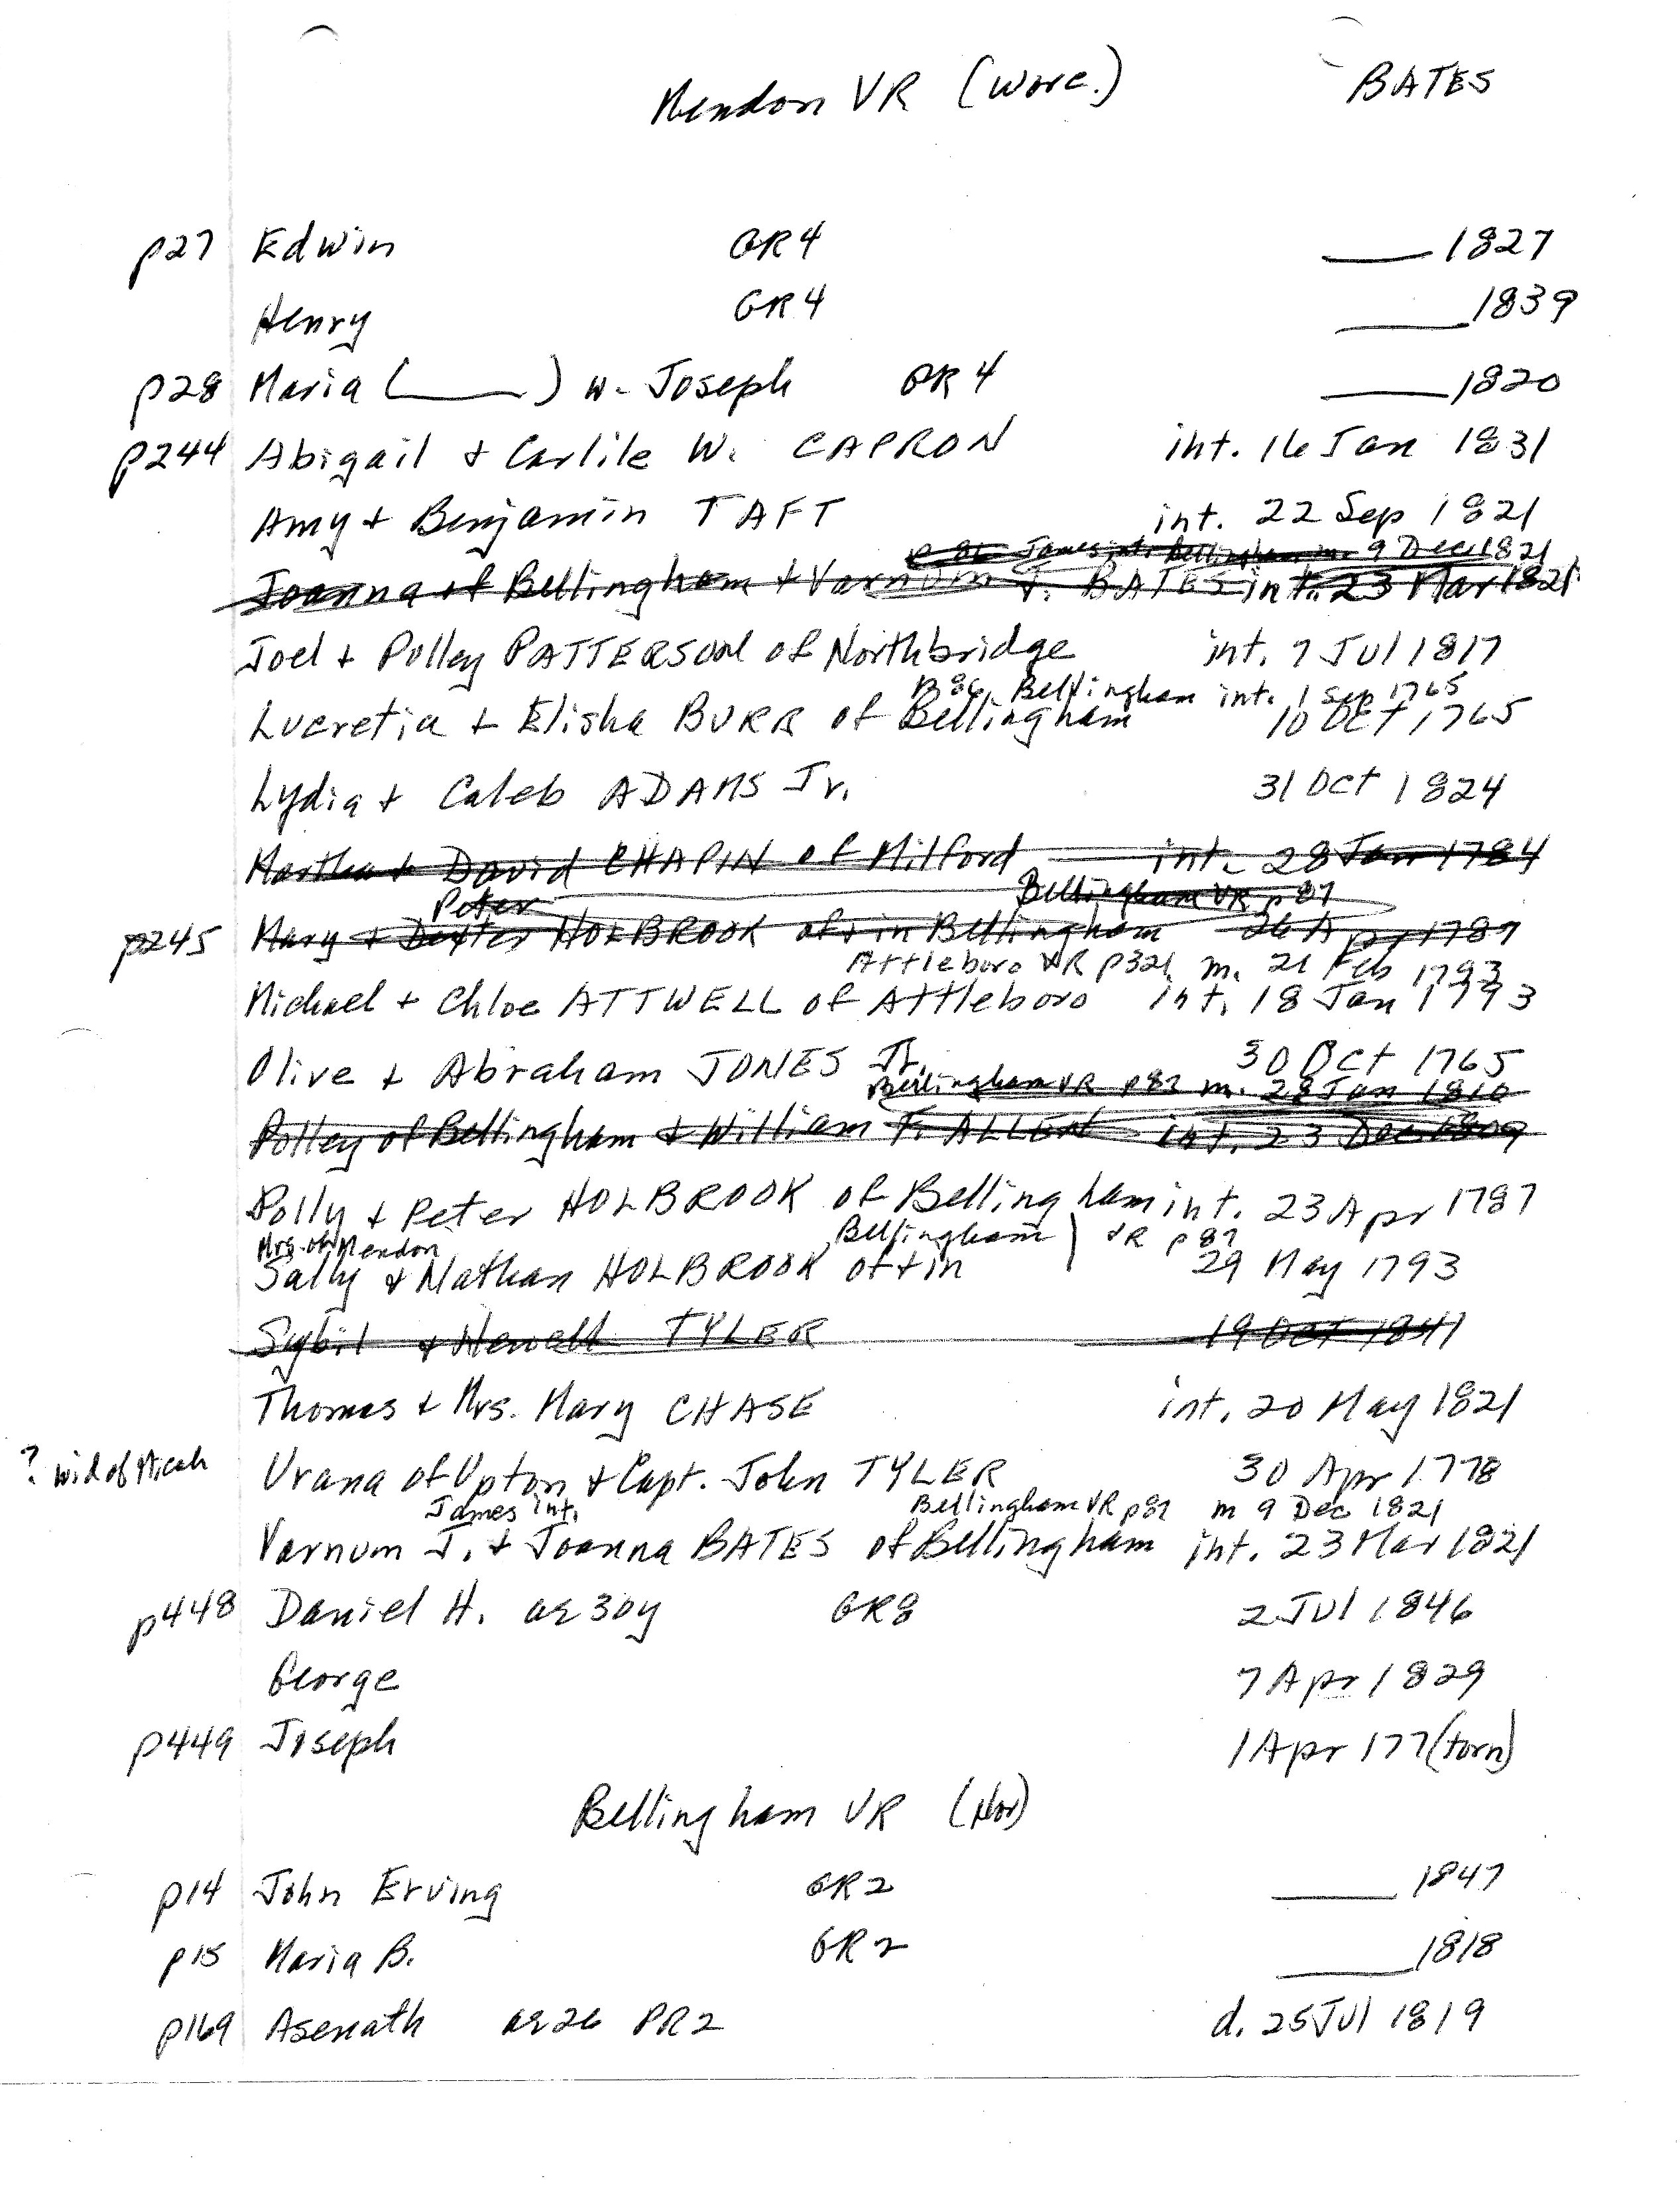 Mendon VR (Worc.) BATES
p27 Edwin GR4 ___ 1827
Henry GR4 ___ 1839
p28 Maria (___) w. Joseph PR4 ___ 1820
p244 Abigail + Carlile W. CAPRON int. 16 Jan 1831
Amy + Benjamin TAFT int. 22 Sep 1821
James int. Bellingham m. 9 Dec 1821
Joanna of Bellingham + Varnum J. BATES int. 23 Mar 1821
Joel + Polley PATTERSON of Northbridge int. 7 Jul 1817
p86, Bellingham int. 1 Sep 1765
Lucretia + Elisha BURR of Bellingham 10 Oct 1765
Lydia + Caleb ADAMS Jr. 31 Oct 1824
Martha + David CHAPIN of Milford int. 28 Jan 1784
Peter Bellingham VR p87
p245 Mary + Dexter HOLBROOK of + in Bellingham 26 Apr 1787
Attleboro VR p321 m. 21 Feb 1793
Michael + Chloe ATTWELL of Attleboro int. 18 Jan 1793
Olive + Abraham JONES Jr. 30 Oct 1765
Bellingham VR p87 m. 28 Jan 1810
Polley of Bellingham + William F. ALLEN int. 23 Dec 1809
Polly + Peter HOLBROOK of Bellingham int. 23 Apr 1787
Mrs. of Mendon Bellingham VR p87
Sally + Nathan HOLBROOK of + in 29 May 1793
Sybil + Newell TYLER 19 Oct 1841
Thomas + Mrs. Mary CHASE int. 20 May 1821
? wid of Micah Urana of Upton + Capt. John TYLER 30 Apr 1778
James int. Bellingham VR p87 m 9 Dec 1821
Varnum J. + Joanna BATES of Bellingham int. 23 Mar 1821
p448 Daniel H. ae 30y GR8 2 Jul 1846
George 7 Apr 1829
p449 Joseph 1 Apr 177(torn)
Bellingham VR (Nor)
p14 John Erving GR2 ___ 1847
p15 Maria B. GR2 ___ 1818
p169 Asenath ae 26 PR2 d. 25 Jul 1819